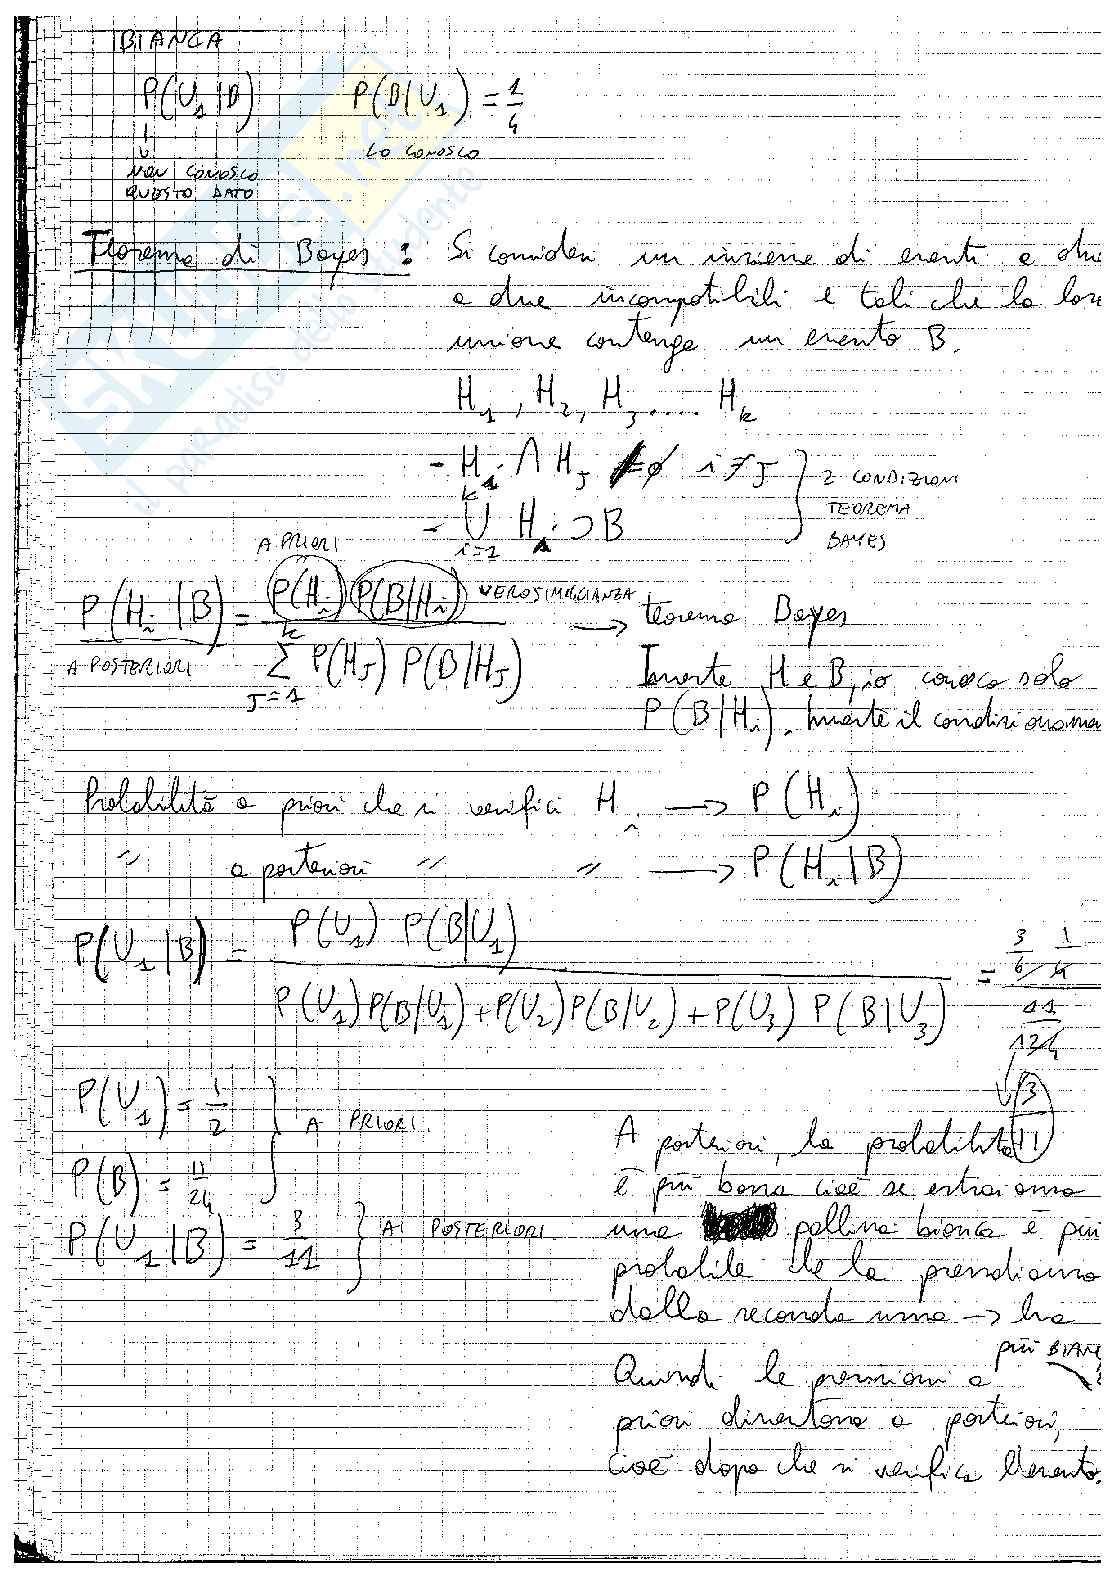 BIANCA
P(U₁|B) P(B|U₁) = 1/4
LO CONOSCO
NON CONOSCO
QUESTO DATO
Teorema di Bayes : Si consideri un insieme di eventi a due
a due incompatibili e tali che la loro
unione contenga un evento B.
H₁, H₂, H₃ .... Hₖ
- Hᵢ ∩ Hⱼ = ∅ i ≠ J
2 CONDIZIONI
TEOREMA
BAYES
- ⋃ᵢ₌₁ᵏ Hᵢ ⊃ B
A PRIORI
P(Hᵢ|B) = P(Hᵢ) P(B|Hᵢ) / ∑ⱼ₌₁ᵏ P(Hⱼ) P(B|Hⱼ) VEROSIMIGLIANZA → teorema Bayes
A POSTERIORI
Inverte H e B, io conosco solo
P(B|Hᵢ). Inverte il condizioname
Probabilità a priori che si verifichi Hᵢ → P(Hᵢ)
〃 a posteriori 〃 〃 → P(Hᵢ|B)
P(U₁|B) = P(U₁) P(B|U₁) / P(U₁)P(B|U₁)+P(U₂)P(B|U₂)+P(U₃) P(B|U₃) = 3/6 1/4 / 11/124
3/11
P(U₁) = 1/2
A PRIORI
P(B) = 11/24
P(U₁|B) = 3/11 AI POSTERIORI
A posteriori, la probabilità
è più bassa cioè se estraiamo
una pallina bianca è più
probabile che la prendiamo
dalla seconda urna → ha
più BIANC
Quindi le previsioni a
priori diventano a posteriori,
cioè dopo che si verifica l'evento.
skuola.net
il paradiso dello studente